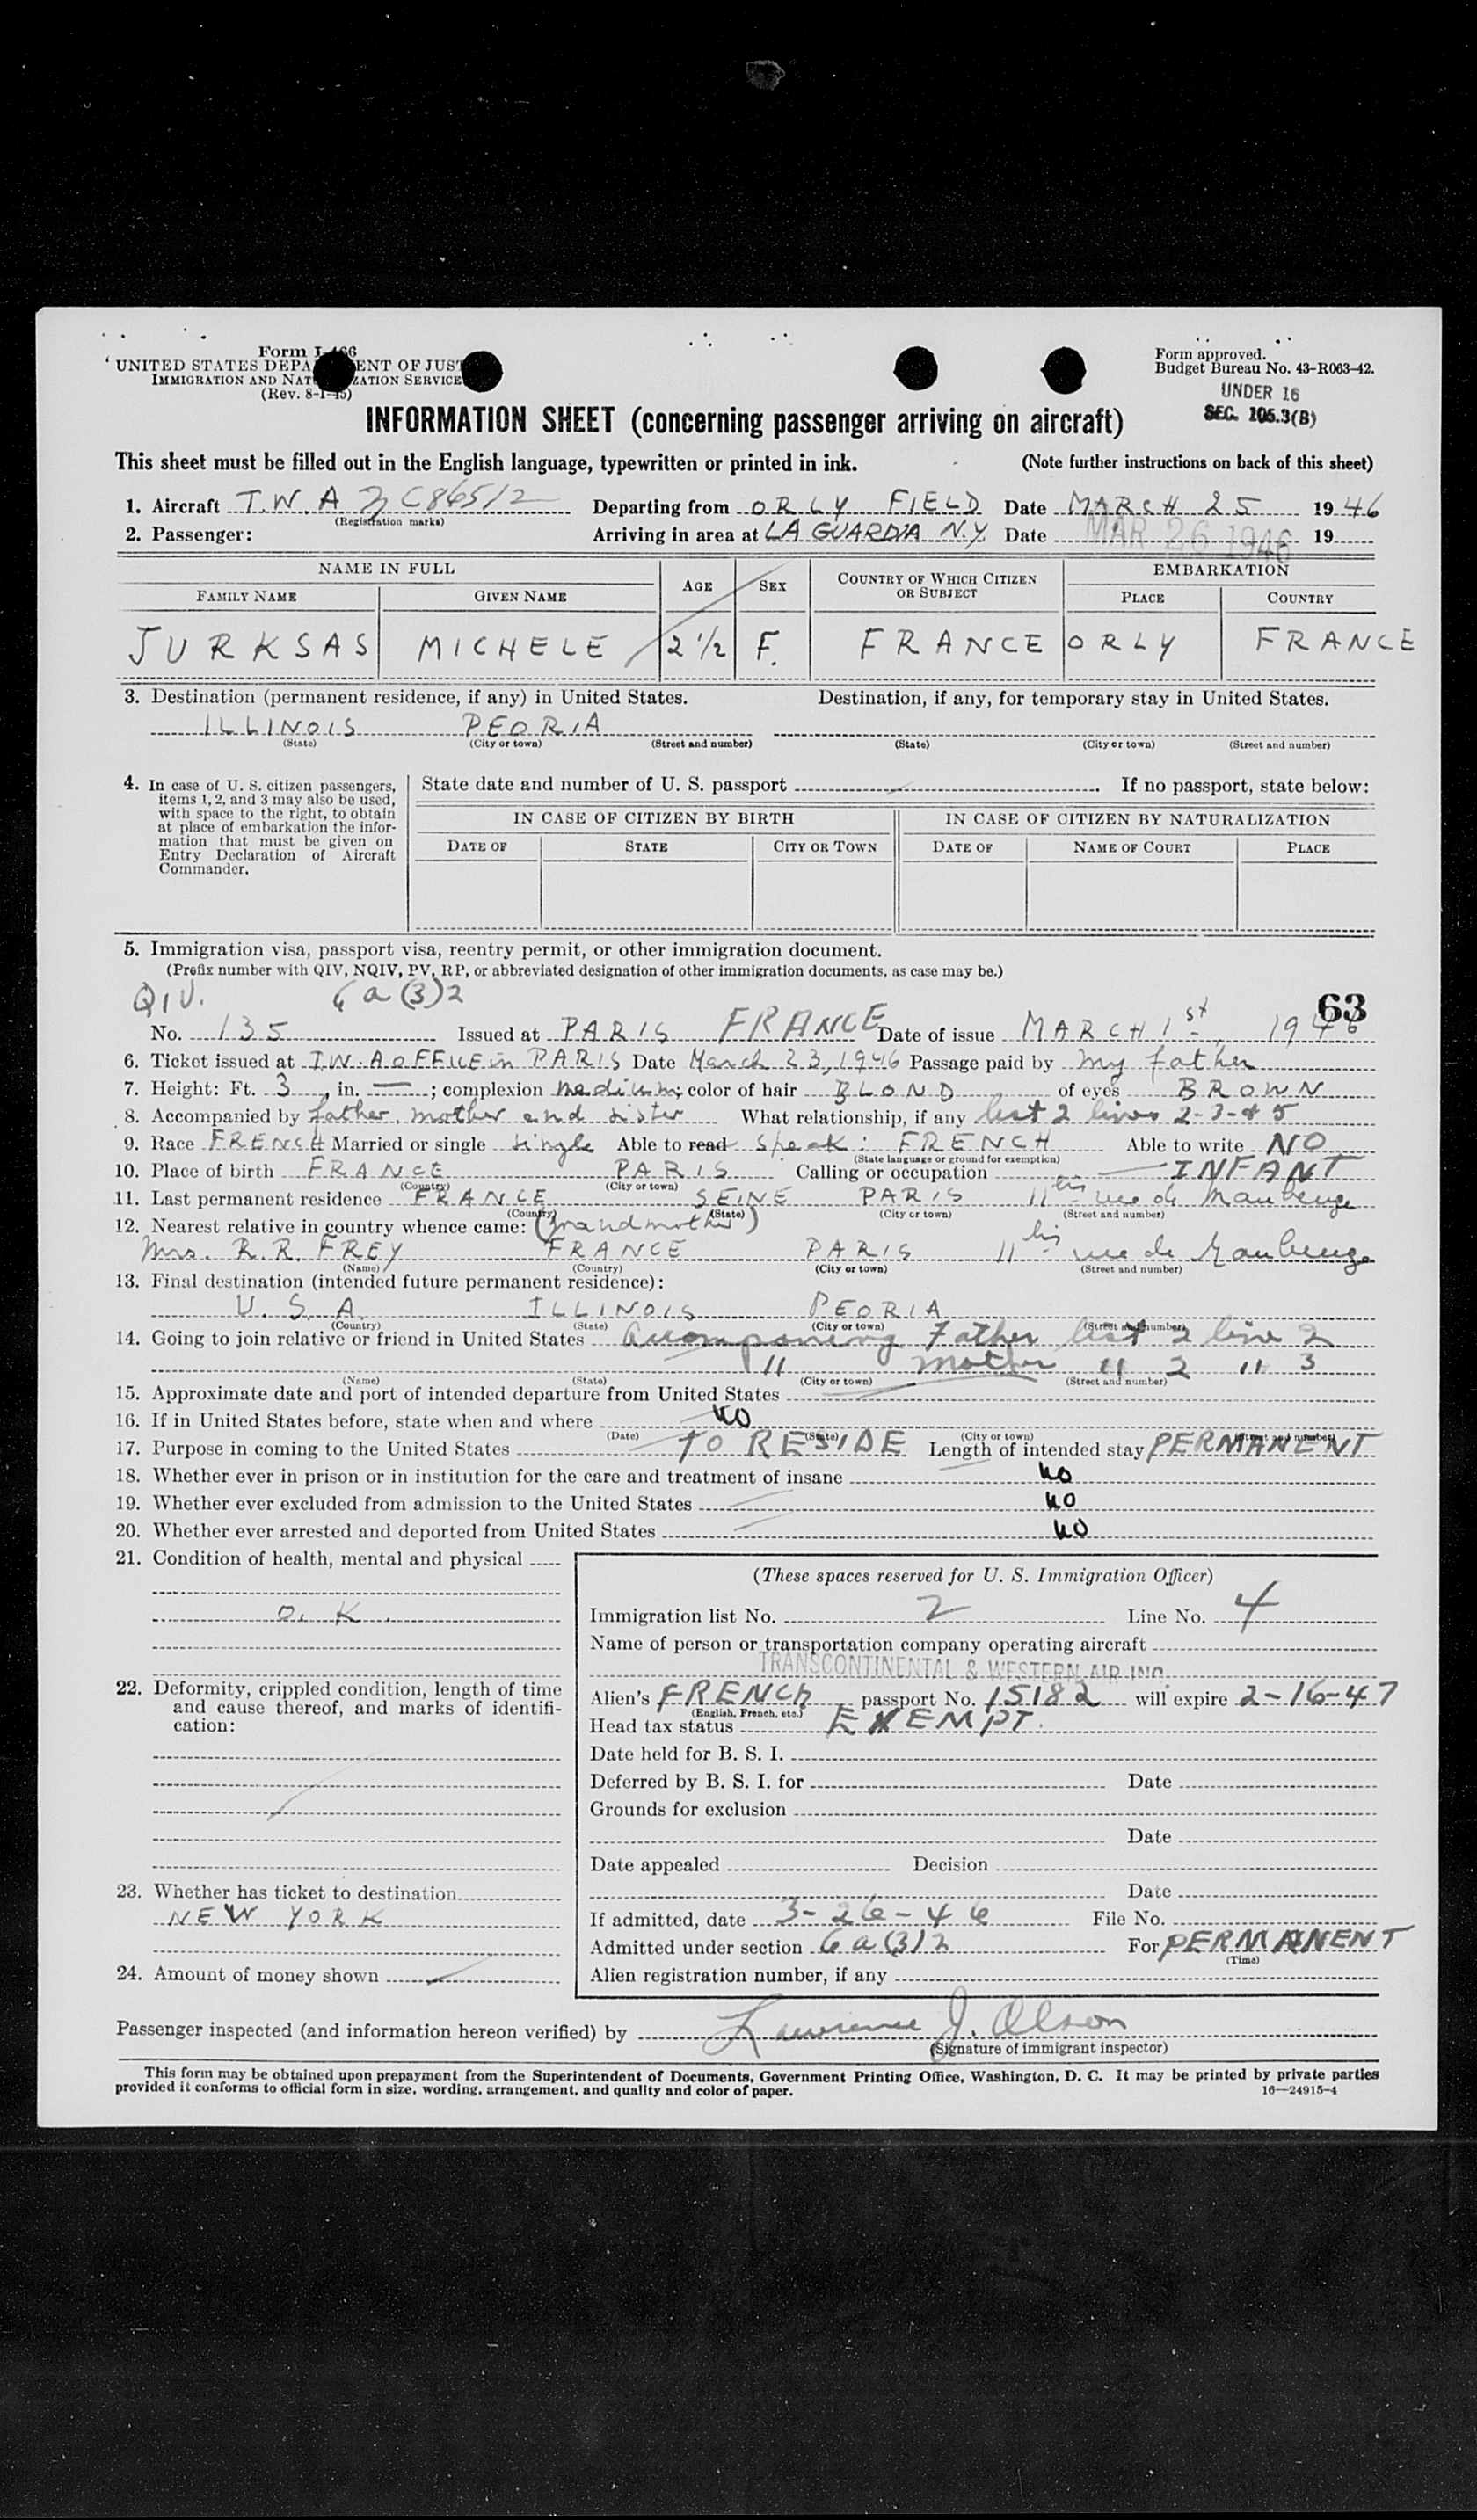 Form I-466
UNITED STATES DEPARTMENT OF JUSTICE
IMMIGRATION AND NATURALIZATION SERVICE
(Rev. 8-1-45)
Form approved.
Budget Bureau No. 43-R063-42.
UNDER 16
SEC. 105.3(B)
INFORMATION SHEET (concerning passenger arriving on aircraft)
This sheet must be filled out in the English language, typewritten or printed in ink. (Note further instructions on back of this sheet)
1. Aircraft T.W.A NC86512 Departing from ORLY FIELD Date MARCH 25 1946
(Registration marks)
2. Passenger: Arriving in area at LA GUARDIA N.Y. Date MAR 26 1946 19
NAME IN FULL AGE SEX COUNTRY OF WHICH CITIZEN OR SUBJECT EMBARKATION
FAMILY NAME GIVEN NAME PLACE COUNTRY
JURKSAS MICHELE 2 1/2 F. FRANCE ORLY FRANCE
3. Destination (permanent residence, if any) in United States. Destination, if any, for temporary stay in United States.
ILLINOIS PEORIA
(State) (City or town) (Street and number) (State) (City or town) (Street and number)
4. In case of U. S. citizen passengers, items 1, 2, and 3 may also be used, with space to the right, to obtain at place of embarkation the information that must be given on Entry Declaration of Aircraft Commander.
State date and number of U. S. passport . If no passport, state below:
IN CASE OF CITIZEN BY BIRTH IN CASE OF CITIZEN BY NATURALIZATION
DATE OF STATE CITY OR TOWN DATE OF NAME OF COURT PLACE
5. Immigration visa, passport visa, reentry permit, or other immigration document.
(Prefix number with QIV, NQIV, PV, RP, or abbreviated designation of other immigration documents, as case may be.)
QIV. 6a(3)2 63
No. 135 Issued at PARIS FRANCE Date of issue MARCH 1st, 1946
6. Ticket issued at T.W.A OFFICE in PARIS Date March 23, 1946 Passage paid by my father
7. Height: Ft. 3, in. —; complexion medium; color of hair BLOND of eyes BROWN
8. Accompanied by father, mother and sister What relationship, if any list 2 lines 2-3-&5
9. Race FRENCH Married or single single Able to read speak: FRENCH Able to write NO
(State language or ground for exemption)
10. Place of birth FRANCE PARIS Calling or occupation INFANT
(Country) (City or town)
11. Last permanent residence FRANCE SEINE PARIS 11bis rue de Maubeuge
(Country) (State) (City or town) (Street and number)
12. Nearest relative in country whence came: (Grandmother)
Mrs. R.R. FREY FRANCE PARIS 11bis rue de Maubeuge
(Name) (Country) (City or town) (Street and number)
13. Final destination (intended future permanent residence):
U.S.A. ILLINOIS PEORIA
(Country) (State) (City or town) (Street and number)
14. Going to join relative or friend in United States Accompanying Father list 2 line 2
" mother " 2 " 3
(Name) (State) (City or town) (Street and number)
15. Approximate date and port of intended departure from United States
16. If in United States before, state when and where NO
(Date) (State) (City or town) (Street and number)
17. Purpose in coming to the United States TO RESIDE Length of intended stay PERMANENT
18. Whether ever in prison or in institution for the care and treatment of insane NO
19. Whether ever excluded from admission to the United States NO
20. Whether ever arrested and deported from United States NO
21. Condition of health, mental and physical
O.K.
22. Deformity, crippled condition, length of time and cause thereof, and marks of identification:
23. Whether has ticket to destination
NEW YORK
24. Amount of money shown
(These spaces reserved for U. S. Immigration Officer)
Immigration list No. 2 Line No. 4
Name of person or transportation company operating aircraft
TRANSCONTINENTAL & WESTERN AIR INC.
Alien's FRENCH passport No. 15182 will expire 2-16-47
(English, French, etc.)
Head tax status EXEMPT.
Date held for B. S. I.
Deferred by B. S. I. for Date
Grounds for exclusion
Date
Date appealed Decision
Date
If admitted, date 3-26-46 File No.
Admitted under section 6a(3)2 For PERMANENT
(Time)
Alien registration number, if any
Passenger inspected (and information hereon verified) by Lawrence J. Olson
(Signature of immigrant inspector)
This form may be obtained upon prepayment from the Superintendent of Documents, Government Printing Office, Washington, D. C. It may be printed by private parties
provided it conforms to official form in size, wording, arrangement, and quality and color of paper. 16—24915-4